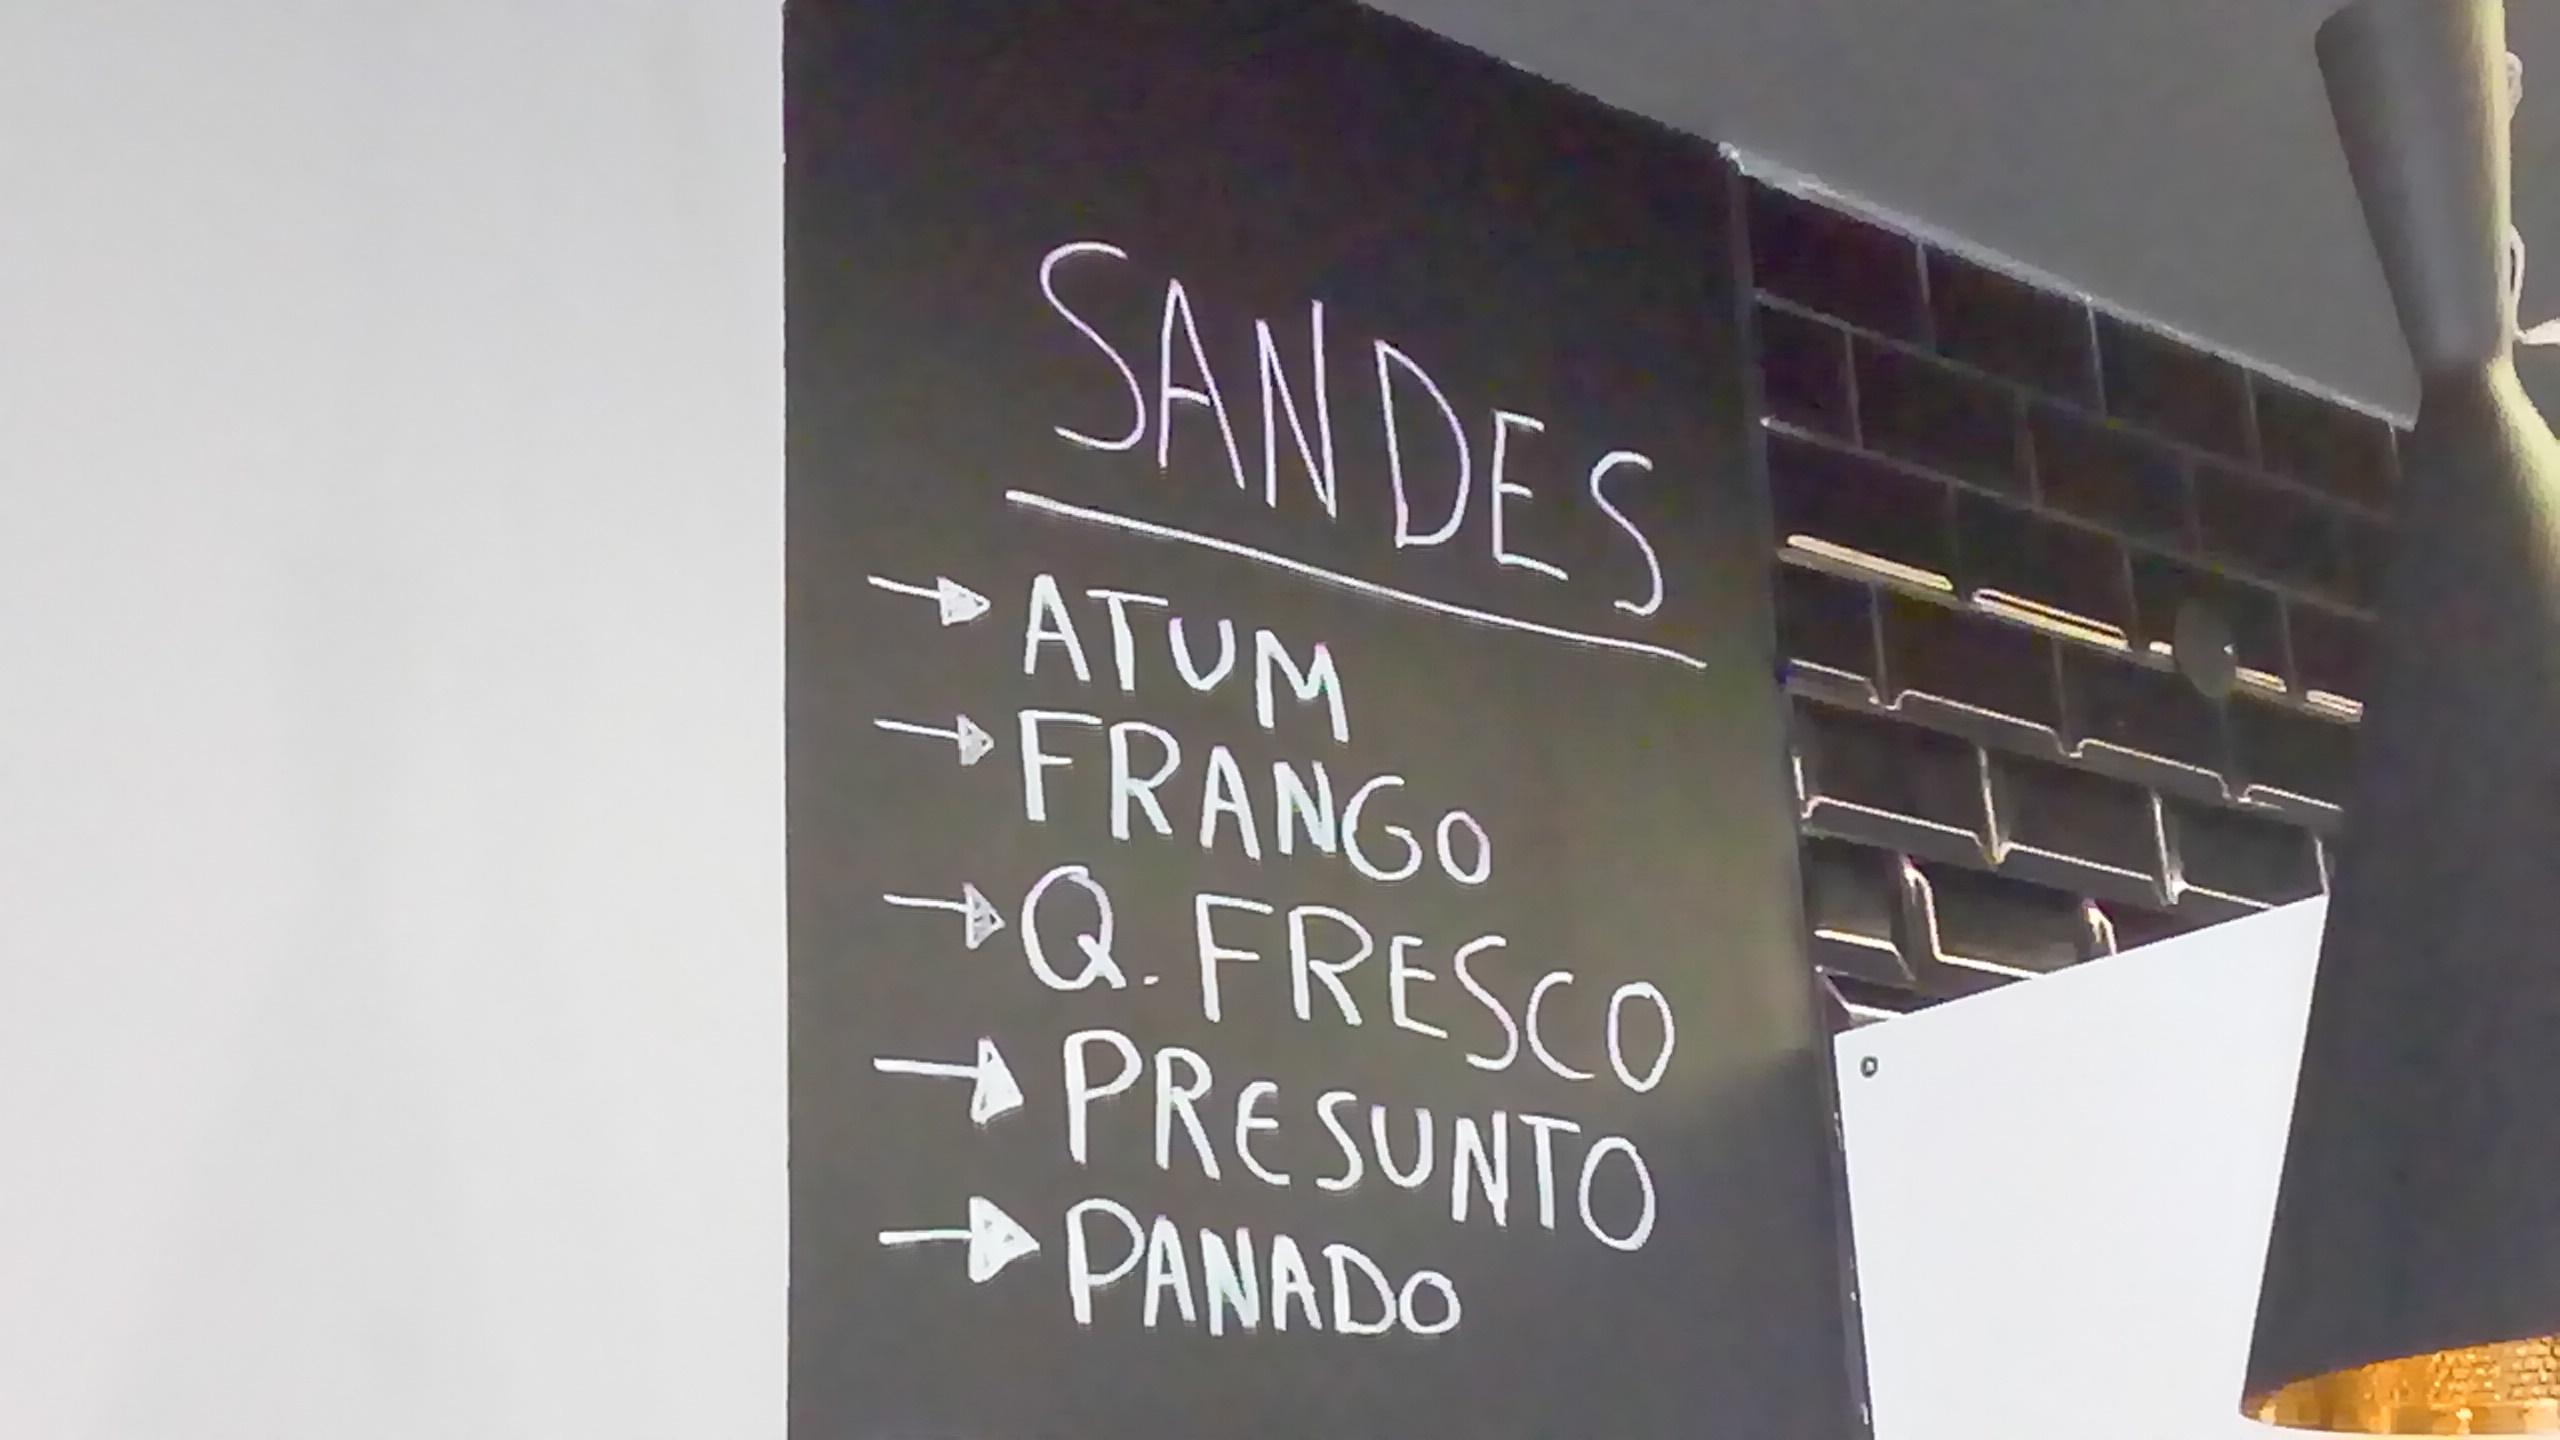 SANDES
→ ATUM
→ FRANGO
→ Q. FRESCO
→ PRESUNTO
→ PANADO